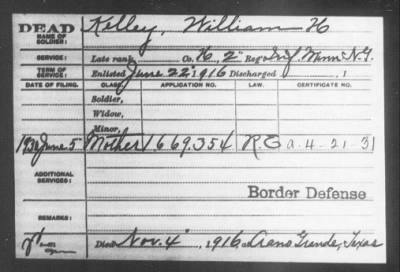 DEAD Kelley, William H
NAME OF SOLDIER:
SERVICE: Late rank, Co. K, 2" Reg't Inf Minn N.G.
TERM OF SERVICE: Enlisted June 22" 1916 Discharged , 1
DATE OF FILING. CLASS. APPLICATION NO. LAW. CERTIFICATE NO.
Soldier,
Widow,
Minor,
June 5 Mother 1669354 a-4-21-31
ADDITIONAL SERVICES:
Border Defense
REMARKS:
Died Nov. 4" , 1916 at Grande, Texas